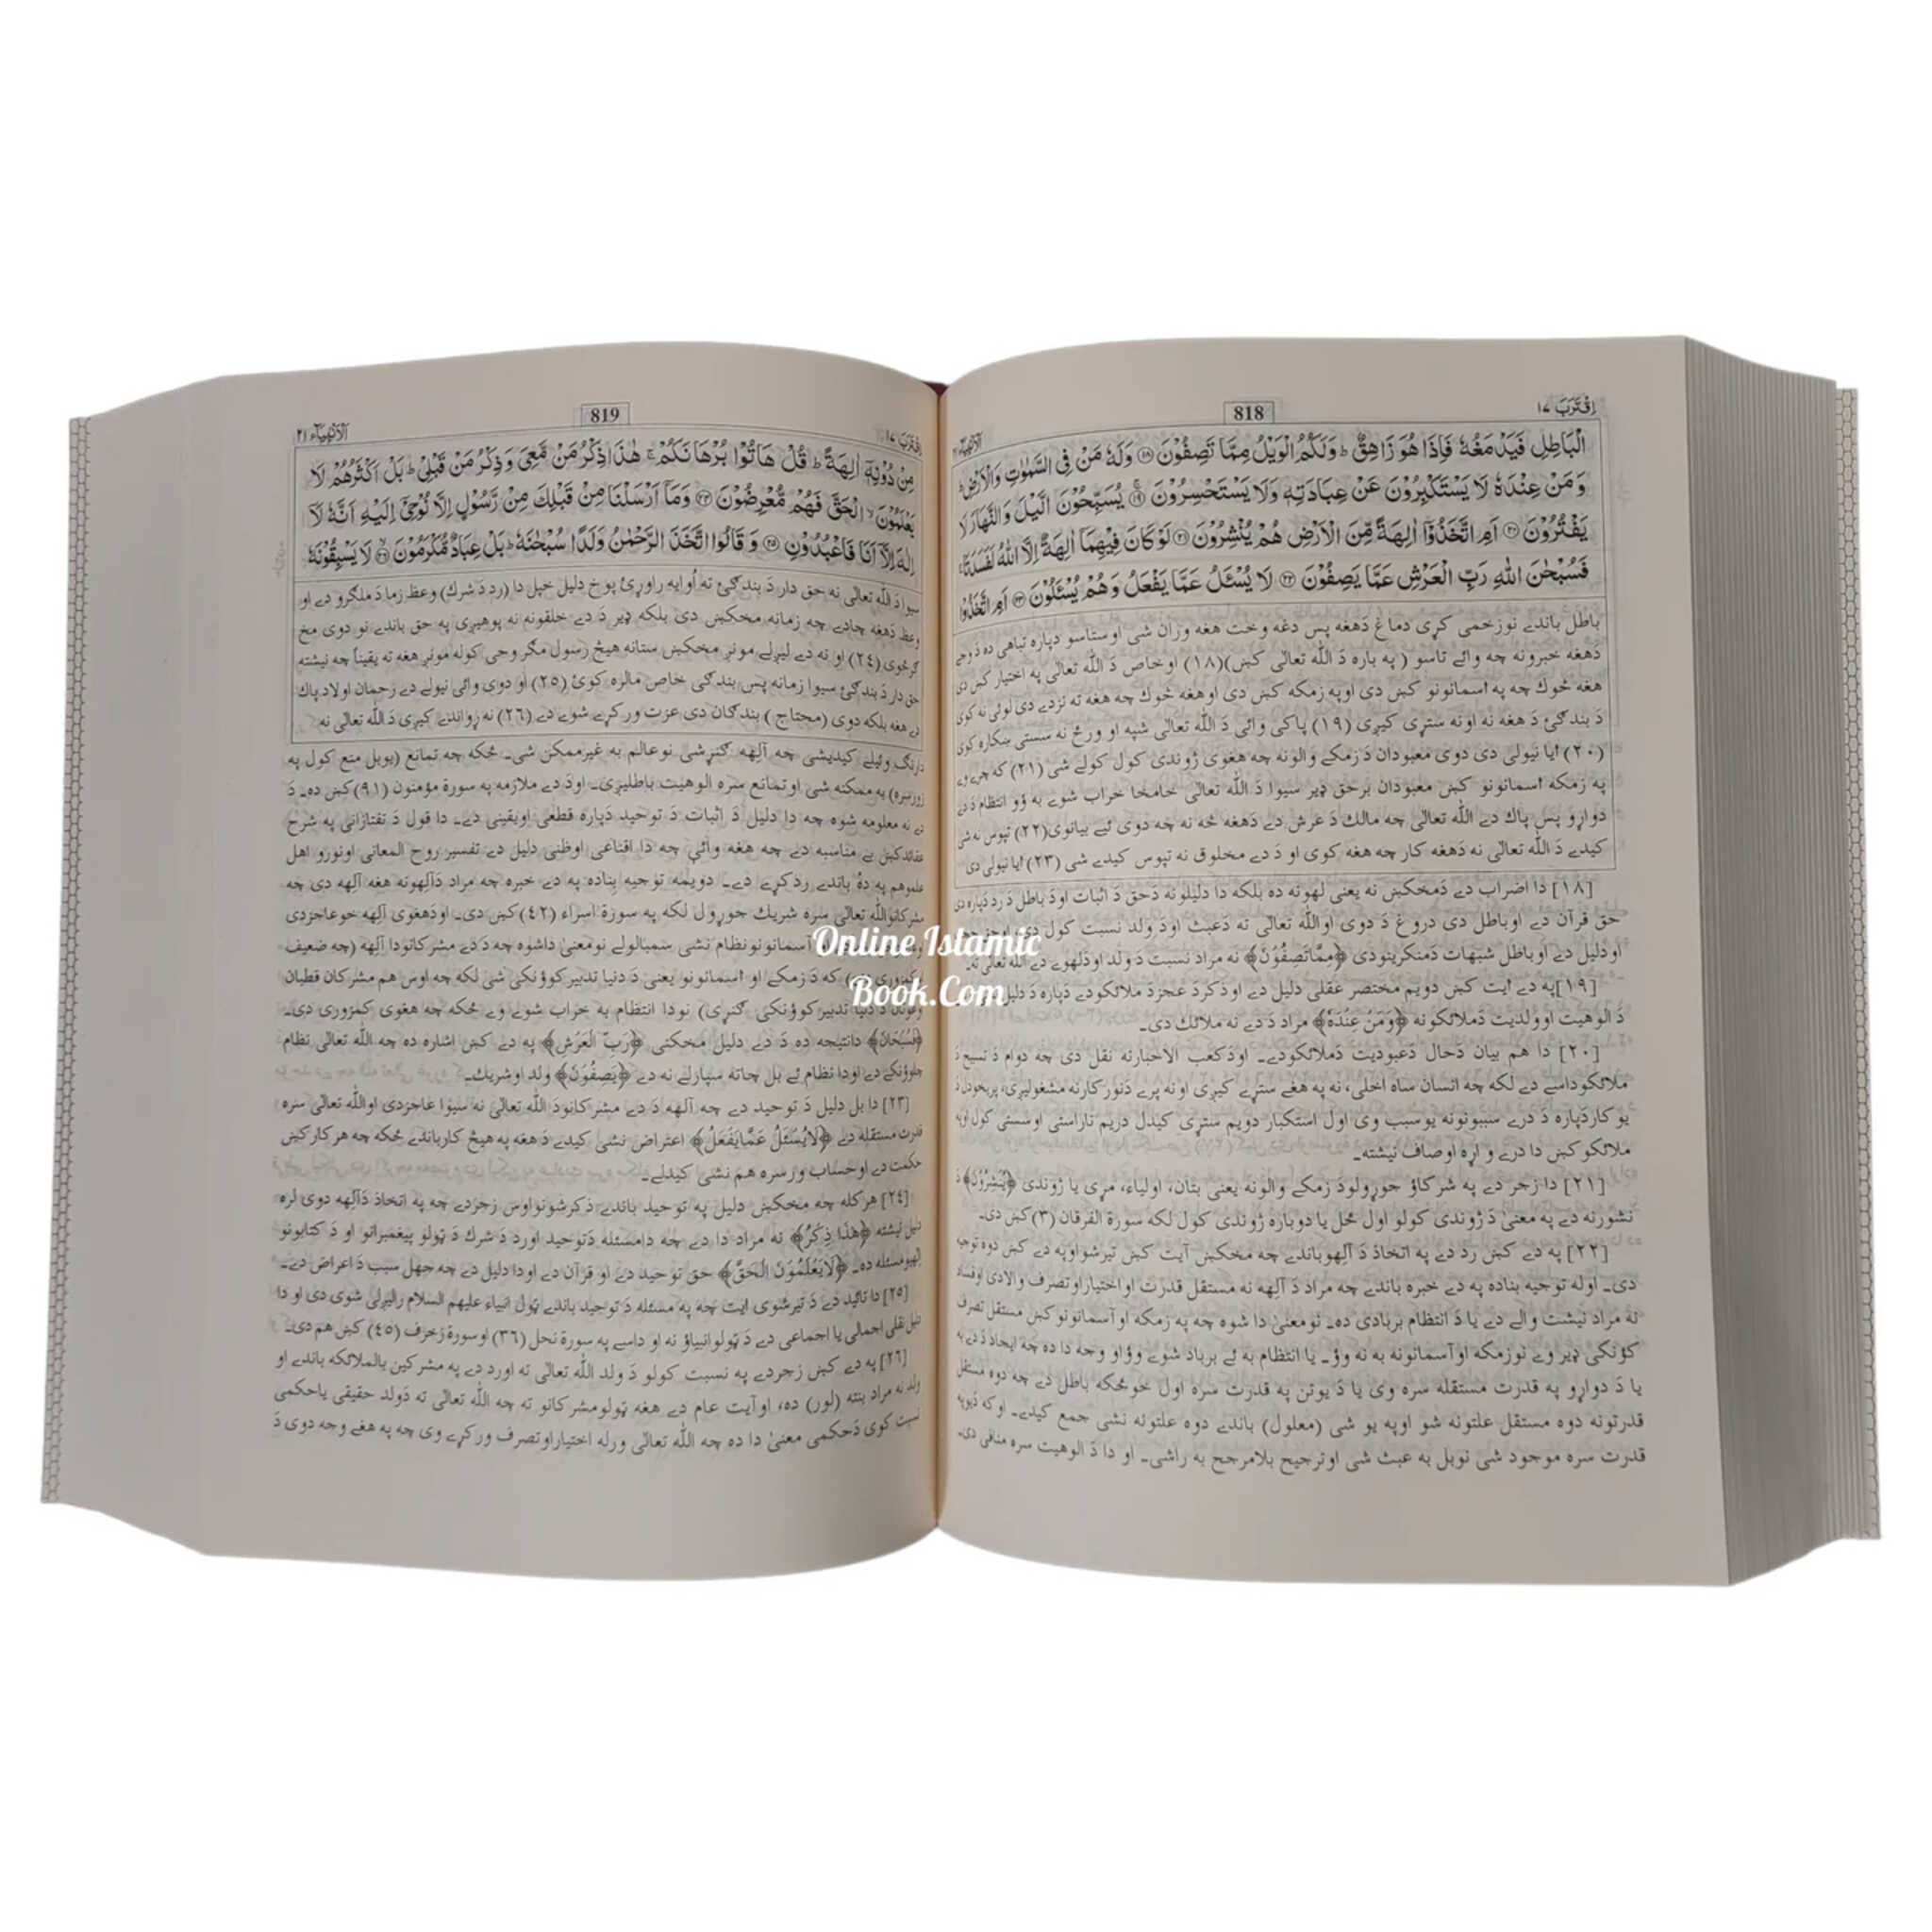 اِقْتَرَبَ ١٧
818
الْبَاطِلِ فَيَدْمَغُهٗ فَاِذَا هُوَ زَاهِقٌ ؕ وَلَكُمُ الْوَيْلُ مِمَّا تَصِفُوْنَ ﴿١٨﴾ وَلَهٗ مَنْ فِى السَّمٰوٰتِ وَالْاَرْضِ ؕ
وَمَنْ عِنْدَهٗ لَا يَسْتَكْبِرُوْنَ عَنْ عِبَادَتِهٖ وَلَا يَسْتَحْسِرُوْنَ ﴿١٩﴾ يُسَبِّحُوْنَ الَّيْلَ وَالنَّهَارَ لَا
يَفْتُرُوْنَ ﴿٢٠﴾ اَمِ اتَّخَذُوْۤا اٰلِهَةً مِّنَ الْاَرْضِ هُمْ يُنْشِرُوْنَ ﴿٢١﴾ لَوْ كَانَ فِيْهِمَاۤ اٰلِهَةٌ اِلَّا اللّٰهُ لَفَسَدَتَا ۚ
فَسُبْحٰنَ اللّٰهِ رَبِّ الْعَرْشِ عَمَّا يَصِفُوْنَ ﴿٢٢﴾ لَا يُسْـَٔلُ عَمَّا يَفْعَلُ وَهُمْ يُسْـَٔلُوْنَ ﴿٢٣﴾ اَمِ اتَّخَذُوْا
باطل باندے نو زخمی کړی دماغ دَهغه پس دغه وخت هغه وران شی او ستاسو دپاره تباهی ده دَ وجے
دَهغه خبرونه چه وائے تاسو (په باره دَ الله تعالٰی کښ)(١٨) او خاص دَ الله تعالٰی په اختیار کښ دی
هغه څوك چه په اسمانونو کښ دی او په زمکه کښ دی او هغه څوك چه هغه ته نزدے دی لوئی نه کوی
دَ بندګئ دَ هغه نه او نه ستړی کیږی (١٩) پاکی وائی دَ الله تعالٰی شپه او ورځ نه سستی ښکاره کوی
(٢٠) ایا نیولی دی دوی معبودان دَ زمکے والونه چه هغوی ژوندی کول کولے شی (٢١) که چرے وے
په زمکه اسمانونو کښ معبودان برحق ډیر سیوا دَ الله تعالٰی خامخا خراب شوے به وؤ انتظام دَ دے
دواړو پس پاك دے الله تعالٰی چه مالك دَ عرش دے دَهغه څه نه چه دوی ئے بیانوی (٢٢) تپوس نه شی
کیدے دَ الله تعالٰی نه دَهغه کار چه هغه کوی او دَ دے مخلوق نه تپوس کیدے شی (٢٣) ایا نیولی دی
[١٨] دا اضراب دے دَمخکښ نه یعنی لهو نه ده بلکه دا دلیلونه دَحق دَ اثبات او دَ باطل دَ رد دَپاره دی
حق قرآن دے او باطل دی دروغ دَ دوی او الله تعالٰی ته دَعبث او دَ ولد نسبت کول دی
او دلیل دے او باطل شبهات دَمنکرینو دی ﴿مِمَّا تَصِفُوْنَ﴾ نه مراد نسبت دَ ولد او دَلهو دے دَ الله تعالٰی ته۔
[١٩] په دے ایت کښ دویم مختصر عقلی دلیل دے او ذکر دَ عجز دَ ملائکو دے دَپاره دَ
دَ الوهیت او ولدیت دَملائکونه ﴿وَمَنْ عِنْدَهٗ﴾ مراد دَ دے نه ملائك دی۔
[٢٠] دا هم بیان دَحال دَعبودیت دَملائکو دے۔ او دَکعب الاحبار نه نقل دی چه دوام دَ تسبیح دَ
ملائکو داسے دے لکه چه انسان ساه اخلی، نه په هغے ستړے کیږی او نه پرے دَنور کار نه مشغولیږی،
یو کار دَپاره دَ درے سببونو نه یو سبب وی اول استکبار دویم ستړی کیدل دریم ناراستی او سستی کول او په
ملائکو کښ دا درے واړه اوصاف نیشته۔
[٢١] دا زجر دے په شرکاؤ جوړولو دَ زمکے والو نه یعنی بتان، اولیاء، مړی یا ژوندی ﴿يُنْشِرُوْنَ﴾ دَ
نشور نه دے په معنیٰ دَ ژوندی کولو اول ځل یا دوباره ژوندی کول لکه سورة الفرقان (٣) کښ دی۔
[٢٢] په دے کښ رد دے په اتخاذ دَ آلِهو باندے چه مخکښ آیت کښ تیر شو او په دے کښ دوه توجیه
دی۔ اوله توجیه بناده په دے خبره باندے چه مراد دَ آلِهه نه مستقل قدرت او اختیار او تصرف والا دی او فساد
نه مراد نیشت والے دے یا دَ انتظام بربادی ده۔ نو معنیٰ دا شوه چه په زمکه او آسمانونو کښ مستقل تصرف
کؤنکی ډیر وے نو زمکه او آسمانونه به نه وؤ۔ یا انتظام به ئے برباد شوے وؤ او وجه دا ده چه ایجاد دَ دے به
یا دَ دواړو په قدرت مستقله سره وی یا دَ یو تن په قدرت سره اول خو ځکه باطل دے چه دوه مستقل
قدرتونه دوه مستقل علتونه شو او په یو شی (معلول) باندے دوه علتونه نشی جمع کیدے۔ او که دَیو په
قدرت سره موجود شی نو بل به عبث شی او ترجیح بلا مرجح به راشی۔ او دا دَ الوهیت سره منافی دی۔
اِقْتَرَبَ ١٧
819
الْاَنْۢبِيَاء ٢١
مِنْ دُوْنِهٖۤ اٰلِهَةً ؕ قُلْ هَاتُوْا بُرْهَانَكُمْ ۚ هٰذَا ذِكْرُ مَنْ مَّعِىَ وَذِكْرُ مَنْ قَبْلِىْ ؕ بَلْ اَكْثَرُهُمْ لَا
يَعْلَمُوْنَ ۙ الْحَقَّ فَهُمْ مُّعْرِضُوْنَ ﴿٢٤﴾ وَمَاۤ اَرْسَلْنَا مِنْ قَبْلِكَ مِنْ رَّسُوْلٍ اِلَّا نُوْحِىْۤ اِلَيْهِ اَنَّهٗ لَاۤ
اِلٰهَ اِلَّاۤ اَنَا فَاعْبُدُوْنِ ﴿٢٥﴾ وَقَالُوا اتَّخَذَ الرَّحْمٰنُ وَلَدًا سُبْحٰنَهٗ ؕ بَلْ عِبَادٌ مُّكْرَمُوْنَ ﴿٢٦﴾ لَا يَسْبِقُوْنَهٗ
سیوا دَ الله تعالٰی نه حق دار دَ بندګئ ته اُوایه راوړئ پوخ دلیل خپل دا (رد دَ شرك) وعظ زما دَ ملګرو دے او
وعظ دَهغه چا دے چه زمانه مخکښ دی بلکه ډیر دَ دے خلقو نه نه پوهیږی په حق باندے نو دوی مخ
ګرځوی (٢٤) او نه دے لیږلے مونږ مخکښ ستا نه هیڅ رسول مګر وحی کوله مونږ هغه ته یقیناً چه نیشته
حق دار دَ بندګئ سیوا زمانه پس بندګی خاص مالره کوئ (٢٥) او دوی وائی نیولے دے رحمان اولاد پاك
دے هغه بلکه دوی (محتاج) بندګان دی عزت ورکړے شوے دے (٢٦) نه ړواندے کیږی دَ الله تعالٰی نه
دارنګ وئیلے کیدیشی چه آلِهه ګنړشی نو عالم به غیر ممکن شی۔ ځکه چه تمانع (یو بل منع کول په
زور سره) به ممکنه شی او تمانع سره الوهیت باطلیږی۔ او دَ دے ملازمه په سورة مؤمنون (٩١) کښ ده۔ دَ
دے نه معلومه شوه چه دا دلیل دَ اثبات دَ توحید دَپاره قطعی او یقینی دے۔ دا قول دَ تفتازانی په شرح
عقائد کښ بے مناسبه دے چه هغه وائی چه دا اقناعی او ظنی دلیل دے تفسیر روح المعانی او نورو اهل
علمو هم په دهٔ باندے رد کړے دے۔ دویمه توجیه بناده په دے خبره چه مراد دَآلِهو نه هغه آلِهه دی چه
مشرکانو الله تعالٰی سره شریك جوړول لکه په سورة اسراء (٤٢) کښ دی۔ او دَهغوی آلِهه خو عاجز دی
آسمانونو نظام نشی سمبالولے نو معنیٰ دا شوه چه دَ دے مشرکانو دا آلِهه (چه ضعیف
که دَ زمکے او اسمانونو یعنی دَ دنیا تدبیر کوؤنکی شی لکه چه اوس هم مشرکان قطبان
دَ دنیا تدبیر کوؤنکی ګنړی) نو دا انتظام به خراب شوے وے ځکه چه هغوی کمزوری دی۔
﴿فَسُبْحَانَ﴾ دا نتیجه ده دَ دے دلیل مخکنی ﴿رَبِّ الْعَرْشِ﴾ په دے کښ اشاره ده چه الله تعالٰی نظام
چلوؤنکے دے او دا نظام ئے بل چاته سپارلے نه دے ﴿يَصِفُوْنَ﴾ ولد او شریك۔
[٢٣] دا بل دلیل دَ توحید دے چه آلِهه دَ دے مشرکانو دَ الله تعالٰی نه سیوا عاجز دی او الله تعالٰی سره
قدرت مستقله دے ﴿لَا يُسْئَلُ عَمَّا يَفْعَلُ﴾ اعتراض نشی کیدے دَ هغه په هیڅ کار باندے ځکه چه هر کار کښ
حکمت دے او حساب ورسره هم نشی کیدلے۔
[٢٤] هر کله چه مخکښ دلیل په توحید باندے ذکر شو نو اوس زجر دے چه په اتخاذ دَآلِهه دوی لره
دلیل نیشته ﴿هٰذَا ذِكْرُ﴾ نه مراد دا دے چه دا مسئله دَتوحید او رد دَ شرك دَ ټولو پیغمبرانو او دَ کتابونو
الهیو مسئله ده۔ ﴿لَا يَعْلَمُوْنَ الْحَقَّ﴾ حق توحید دے او قرآن دے او دا دلیل دے چه جهل سبب دَ اعراض دے۔
[٢٥] دا تائید دے دَ تیر شوی ایت چه په مسئله دَ توحید باندے ټول انبیاء علیهم السلام رالیږلی شوی دی او دا
دلیل نقلی اجمالی یا اجماعی دے دَ ټولو انبیاؤ نه او داسے په سورة نحل (٣٦) او سورة زخرف (٤٥) کښ هم دی۔
[٢٦] په دے کښ زجر دے په نسبت کولو دَ ولد الله تعالٰی ته او رد دے په مشرکین بالملائکه باندے او
ولد نه مراد بنته (لور) ده، او آیت عام دے هغه ټولو مشرکانو ته چه الله تعالٰی ته دَولد حقیقی یا حکمی
نسبت کوی دَحکمی معنیٰ دا ده چه الله تعالٰی ورله اختیار او تصرف ورکړے وی چه په هغے وجه دوی دَ
Online Islamic
Book.Com